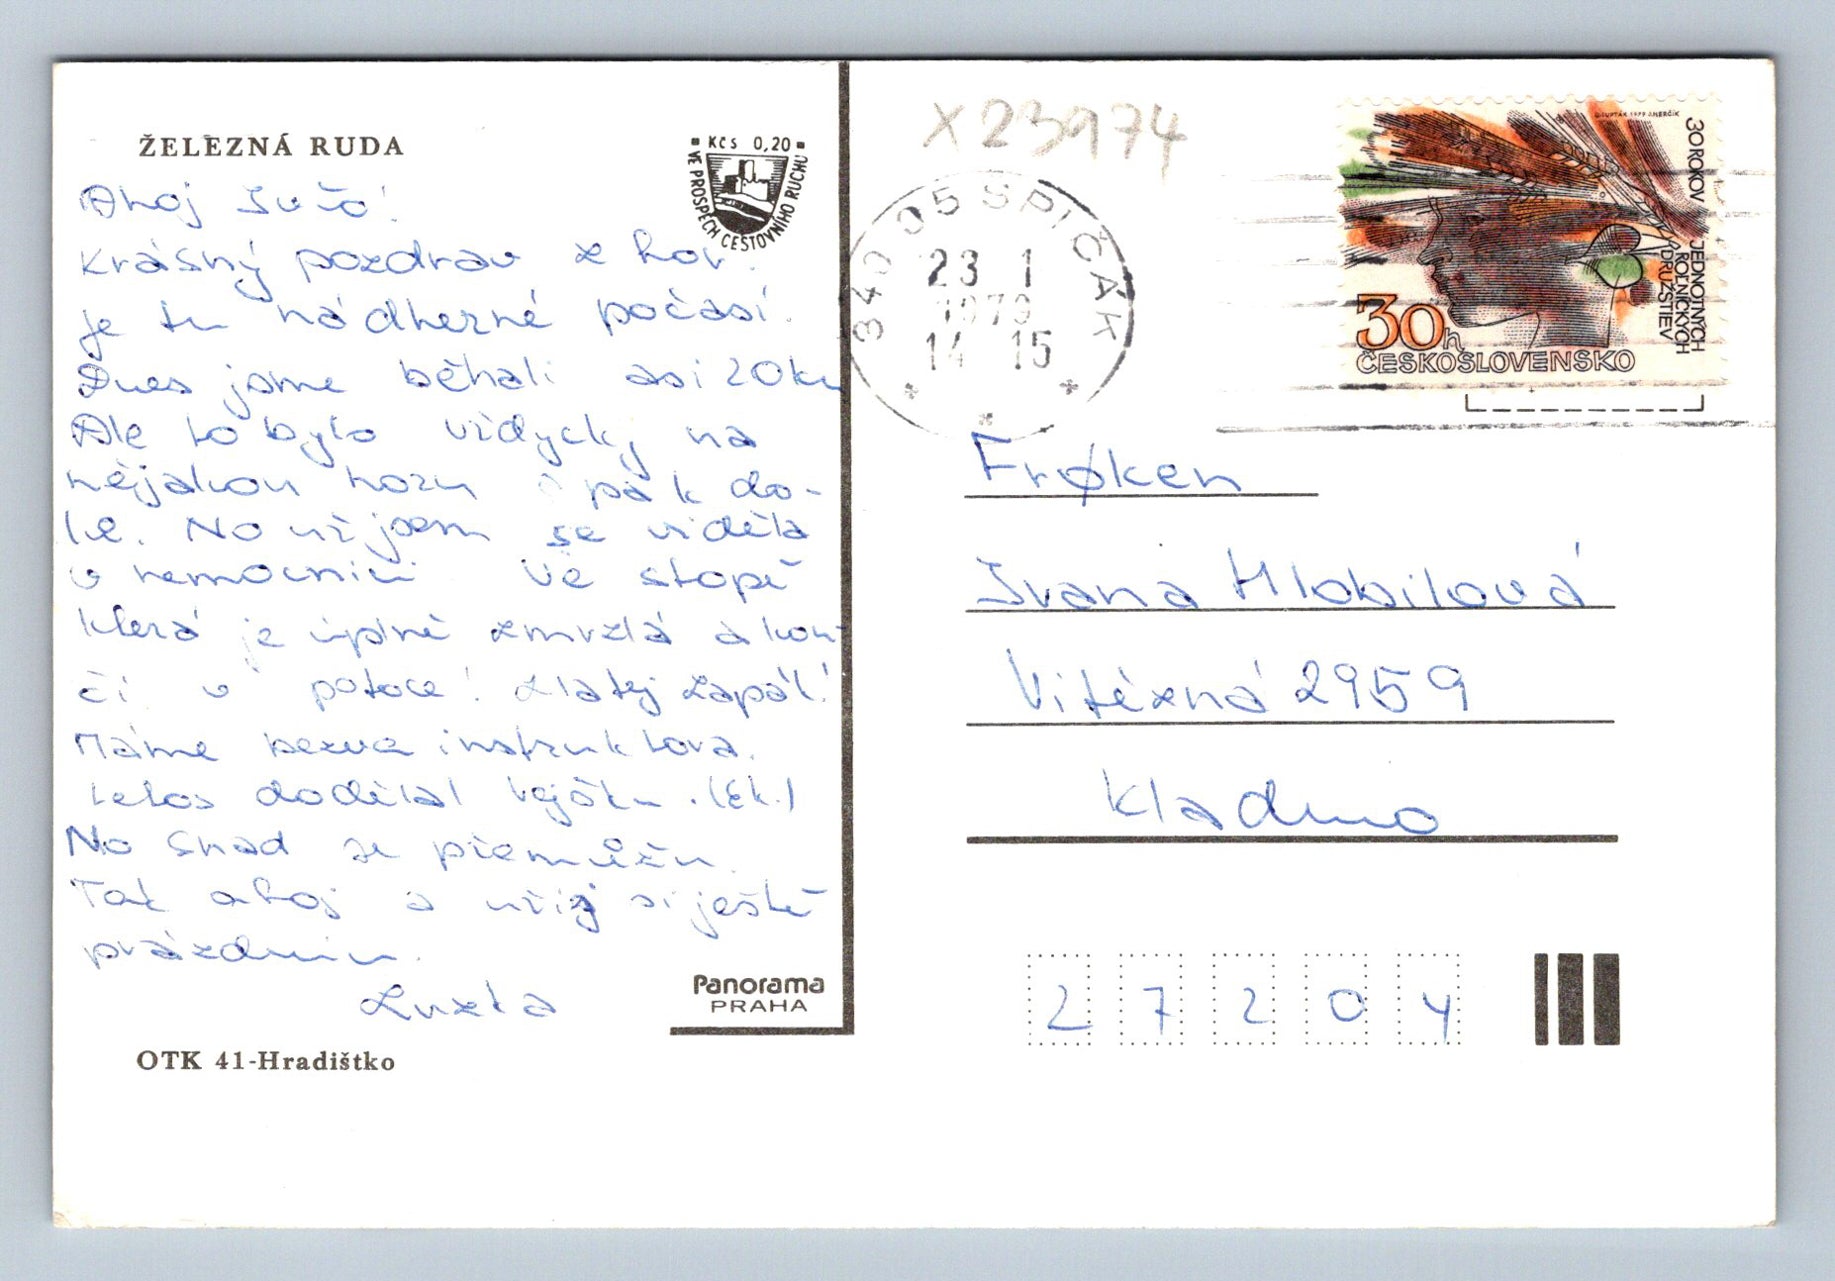 ŽELEZNÁ RUDA
Kčs 0,20
VE PROSPĚCH CESTOVNÍHO RUCHU
Ahoj
Krásný pozdrav z hor.
je tu nádherné počasí.
Dnes jsme běhali asi 20km
Ale to bylo vždycky na
nějakou horu a pak do-
le. No už jsem se viděla
v nemocnici ve stopě
která je úplně zmrzlá a kon-
čí v potoce! Zlatej zápal!
Máme bezva instruktora.
Letos dodělal vejšku.
No snad se přemůžu.
Tak ahoj a užij si ještě
prázdnin.
OTK 41-Hradištko
Panorama
PRAHA
X23974
340 05 ŠPIČÁK
23 1
1979
14 15
30 ROKOV JEDNOTNÝCH
ROĽNÍCKYCH
DRUŽSTIEV
30h
ČESKOSLOVENSKO
Frøken
Ivana Hlobilová
Vítězná 2959
Kladno
27204